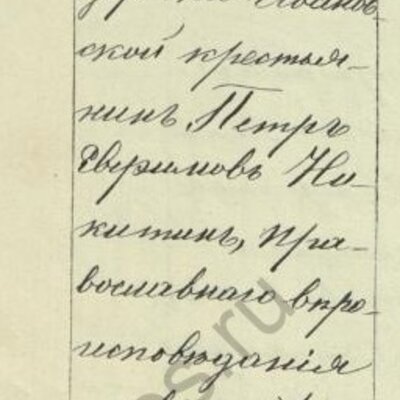 ской крестья-
нинъ, Петръ
Ефимовъ Ни-
китинъ, пра-
вославнаго вѣро-
исповѣданія